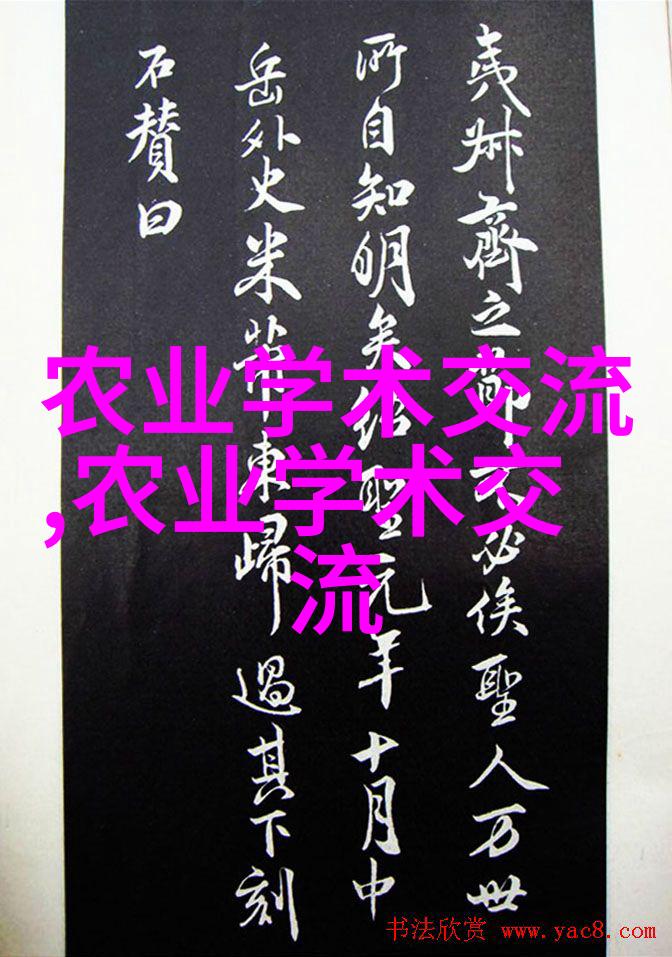 夷叔齊之節必俟聖人万世
所自知明矣紹聖元年十月中
岳外史米芾東歸過其下刻
石賛曰
农业学术交流
,农业学术交
流
书法欣赏 www.yac8.com